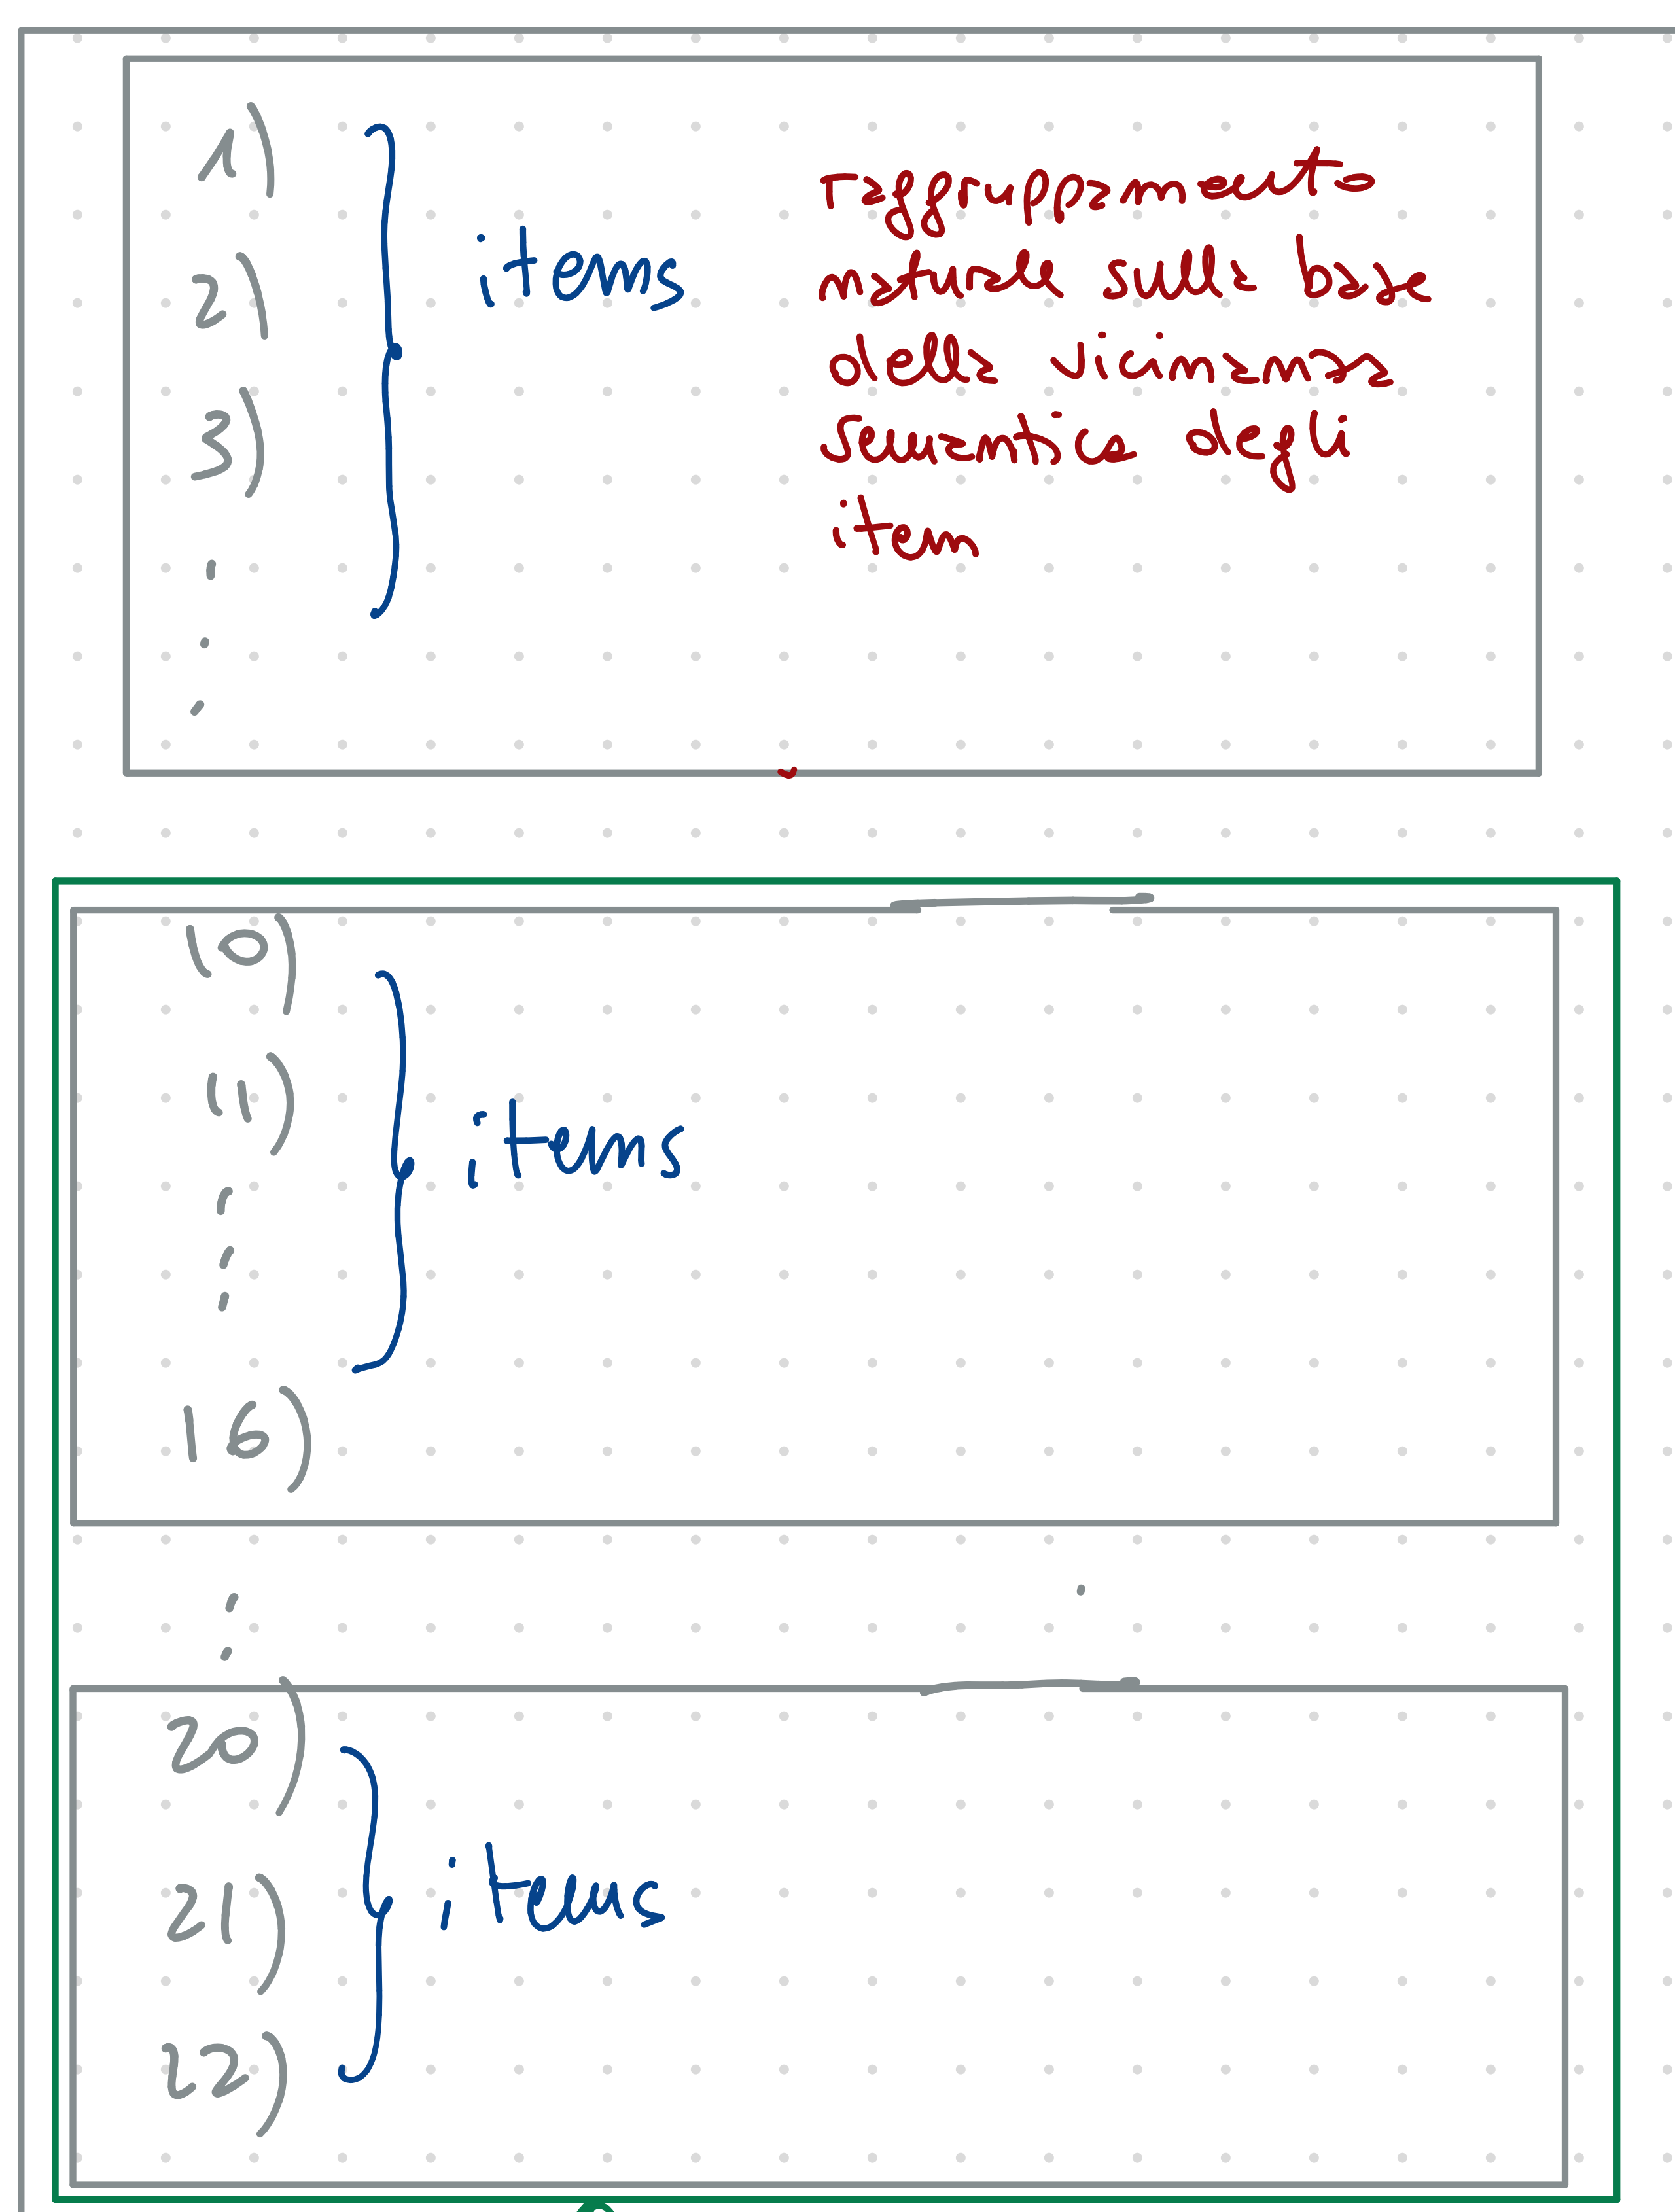 1)
2)
3)
.
.
.
items
raggruppamento
naturale sulla base
della vicinanza
semantica degli
item
10)
11)
.
.
.
16)
items
.
.
20)
21)
22)
items